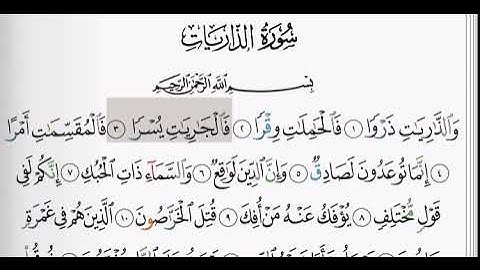 سُورَةُ الذَّارِيَاتِ
بِسْمِ اللَّهِ الرَّحْمَٰنِ الرَّحِيمِ
وَالذَّارِيَاتِ ذَرْوًا ١ فَالْحَامِلَاتِ وِقْرًا ٢ فَالْجَارِيَاتِ يُسْرًا ٣ فَالْمُقَسِّمَاتِ أَمْرًا
٤ إِنَّمَا تُوعَدُونَ لَصَادِقٌ ٥ وَإِنَّ الدِّينَ لَوَاقِعٌ ٦ وَالسَّمَاءِ ذَاتِ الْحُبُكِ ٧ إِنَّكُمْ لَفِي
قَوْلٍ مُّخْتَلِفٍ ٨ يُؤْفَكُ عَنْهُ مَنْ أُفِكَ ٩ قُتِلَ الْخَرَّاصُونَ ١٠ الَّذِينَ هُمْ فِي غَمْرَةٍ